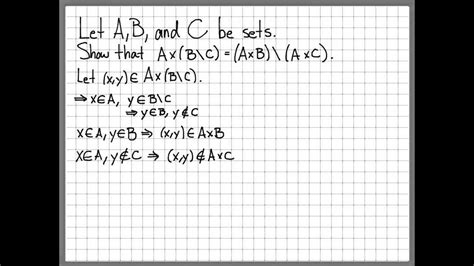 Let A,B, and C be sets.
Show that A×(B\C) = (A×B)\(A×C).
Let (x,y)∈A×(B\C).
⇒ x∈A, y∈B\C
⇒ y∈B, y∉C
x∈A, y∈B ⇒ (x,y)∈A×B
x∈A, y∉C ⇒ (x,y)∉A×C